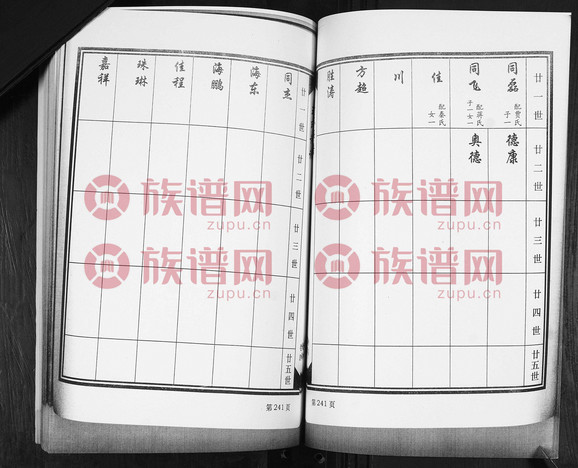 廿一世
廿二世
廿三世
廿四世
廿五世
同磊
配贾氏
子一
德康
同飞
配蒋氏
子一女一
奥德
佳
配秦氏
女一
川
方超
胜涛
第241页
廿一世
廿二世
廿三世
廿四世
廿五世
同杰
海东
海鹏
佳程
珠琳
嘉祥
第241页
族谱网
zupu.cn
族谱网
zupu.cn
族谱网
zupu.cn
族谱网
zupu.cn